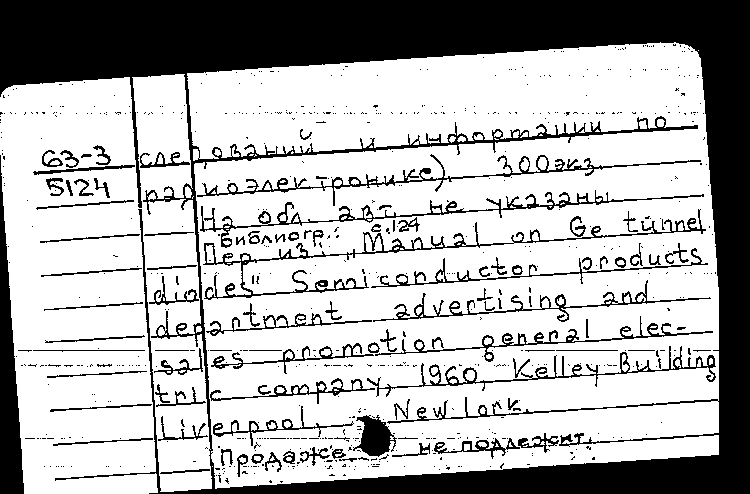 63-3 следований и информации по
5124 радиоэлектронике). 300экз.
На обл. авт. не указаны.
Библиогр.: с.124
Пер. из: „Manual on Ge tunnel
diodes" Semiconductor products
department advertising and
sales promotion general elec-
tric company, 1960, Kelley Building
Liverpool, New Iork.
Продаже не подлежит.